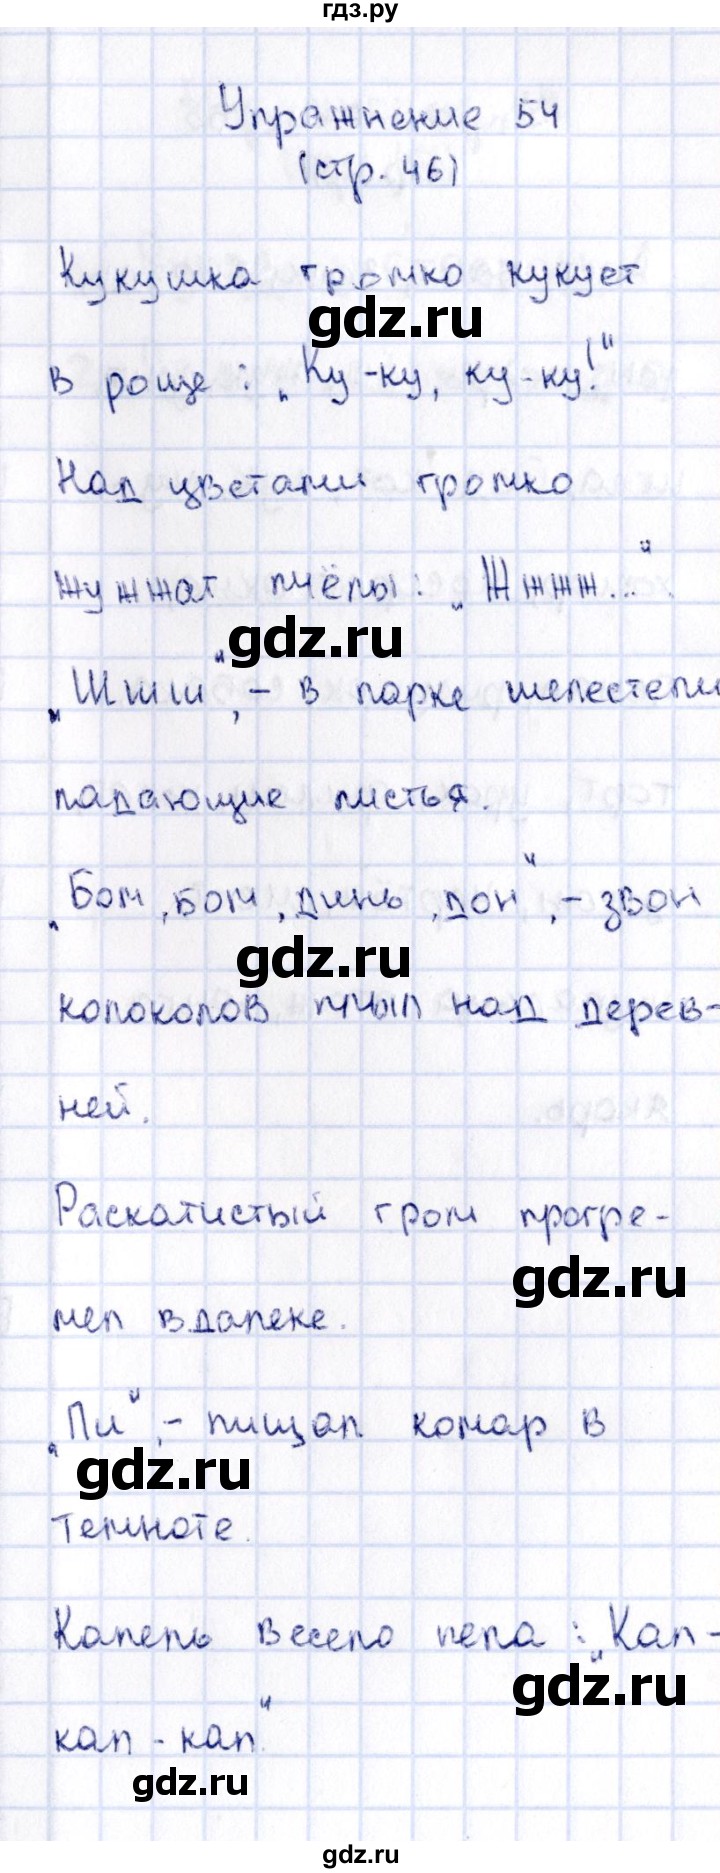 гдз.ру
Упражнение 54
(стр. 46)
Кукушка громко кукует
gdz.ru
в роще: „Ку-ку, ку-ку!“
Над цветами громко
жужжат пчёлы: „Жжжж...“.
gdz.ru
„Шшш“, - в парке шелестели
падающие листья.
„Бом, бом, динь, дон“, - звон
gdz.ru
колоколов плыл над дерев-
ней.
Раскатистый гром прогре-
gdz.ru
мел вдалеке.
„Пи“, - пищал комар в
gdz.ru
темноте.
Капель весело пела: „Кап-
gdz.ru
кап-кап“.
gdz.ru
gdz.ru